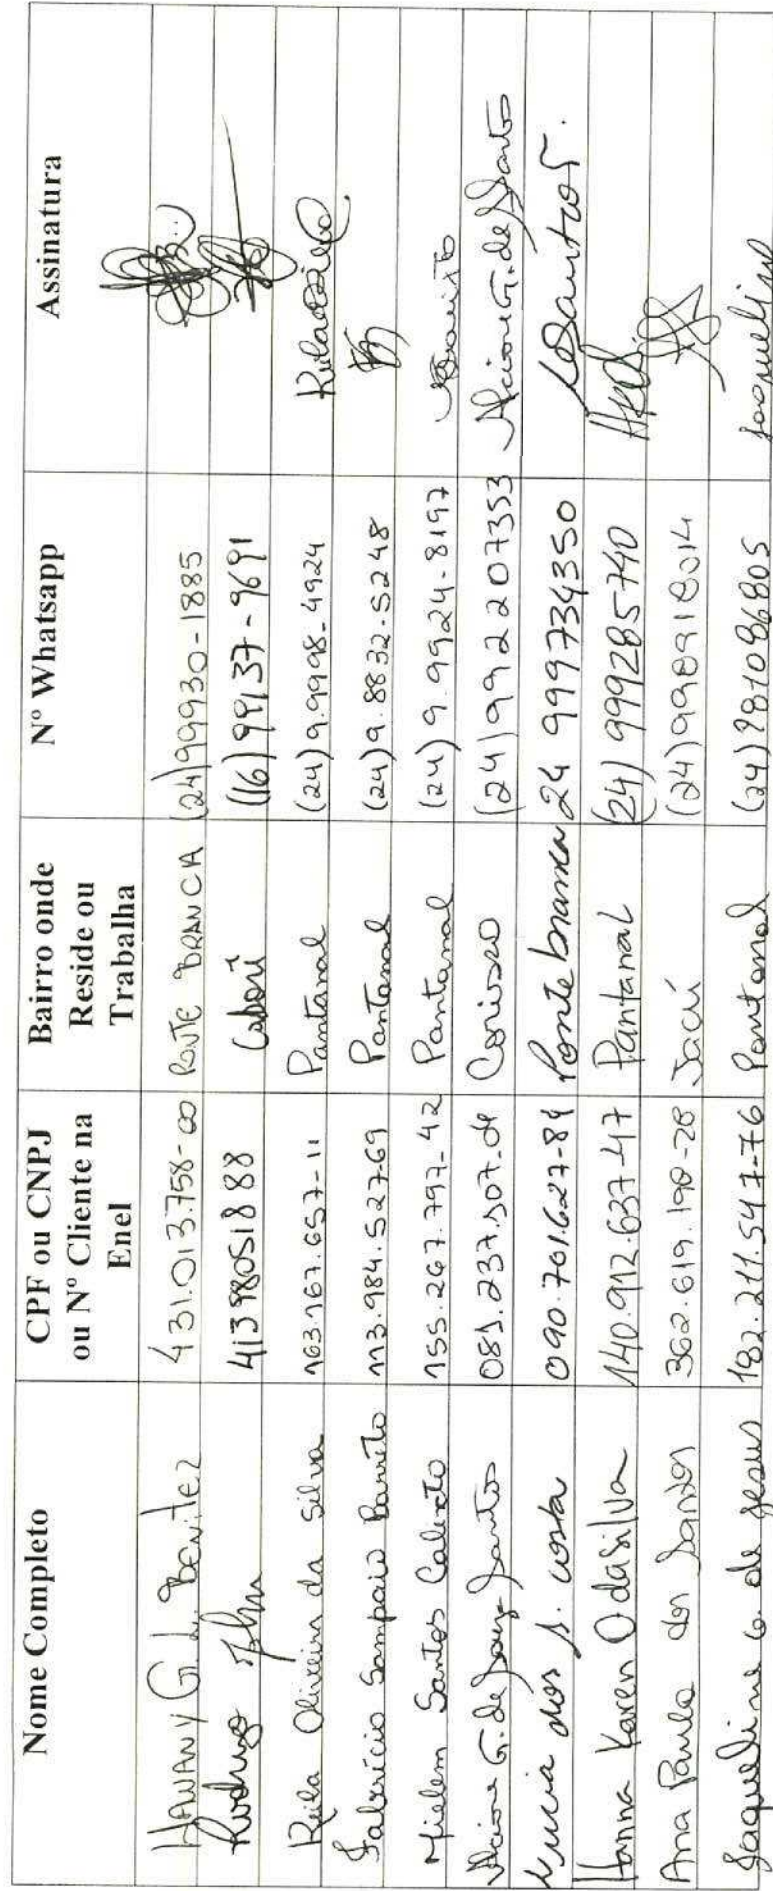 Nome Completo | CPF ou CNPJ ou Nº Cliente na Enel | Bairro onde Reside ou Trabalha | Nº Whatsapp | Assinatura
HAWANY G. L. BENITEZ | 431.013.758-00 | PONTE BRANCA | (24)99930-1885
Rodrigo | 41398051888 | Caborê | (16) 99137-9691
Keila Oliveira da Silva | 163.167.657-11 | Pantanal | (24)9.9998-4924
Fabrício Sampaio Barreto | 113.984.527-69 | Pantanal | (24)9.8832-5248
Mielem Santos Calixto | 155.267.797-42 | Pantanal | (24)9.9924-8197
Alcione G. de Souza Santos | 081.237.507-04 | Corisco | (24)992207353 | Alcione G. de Santos
Lucia dos S. Costa | 090.701.627-84 | Ponte branca | 24 999734350
Hanna Karen O da Silva | 140.912.637-47 | Pantanal | (24) 999285740
Ana Paula dos Santos | 362.619.198-28 | Jacú | (24)998918014
Jaqueline C. de Jesus | 182.211.547-76 | Pantanal | (24) 981086805 | Jaqueline